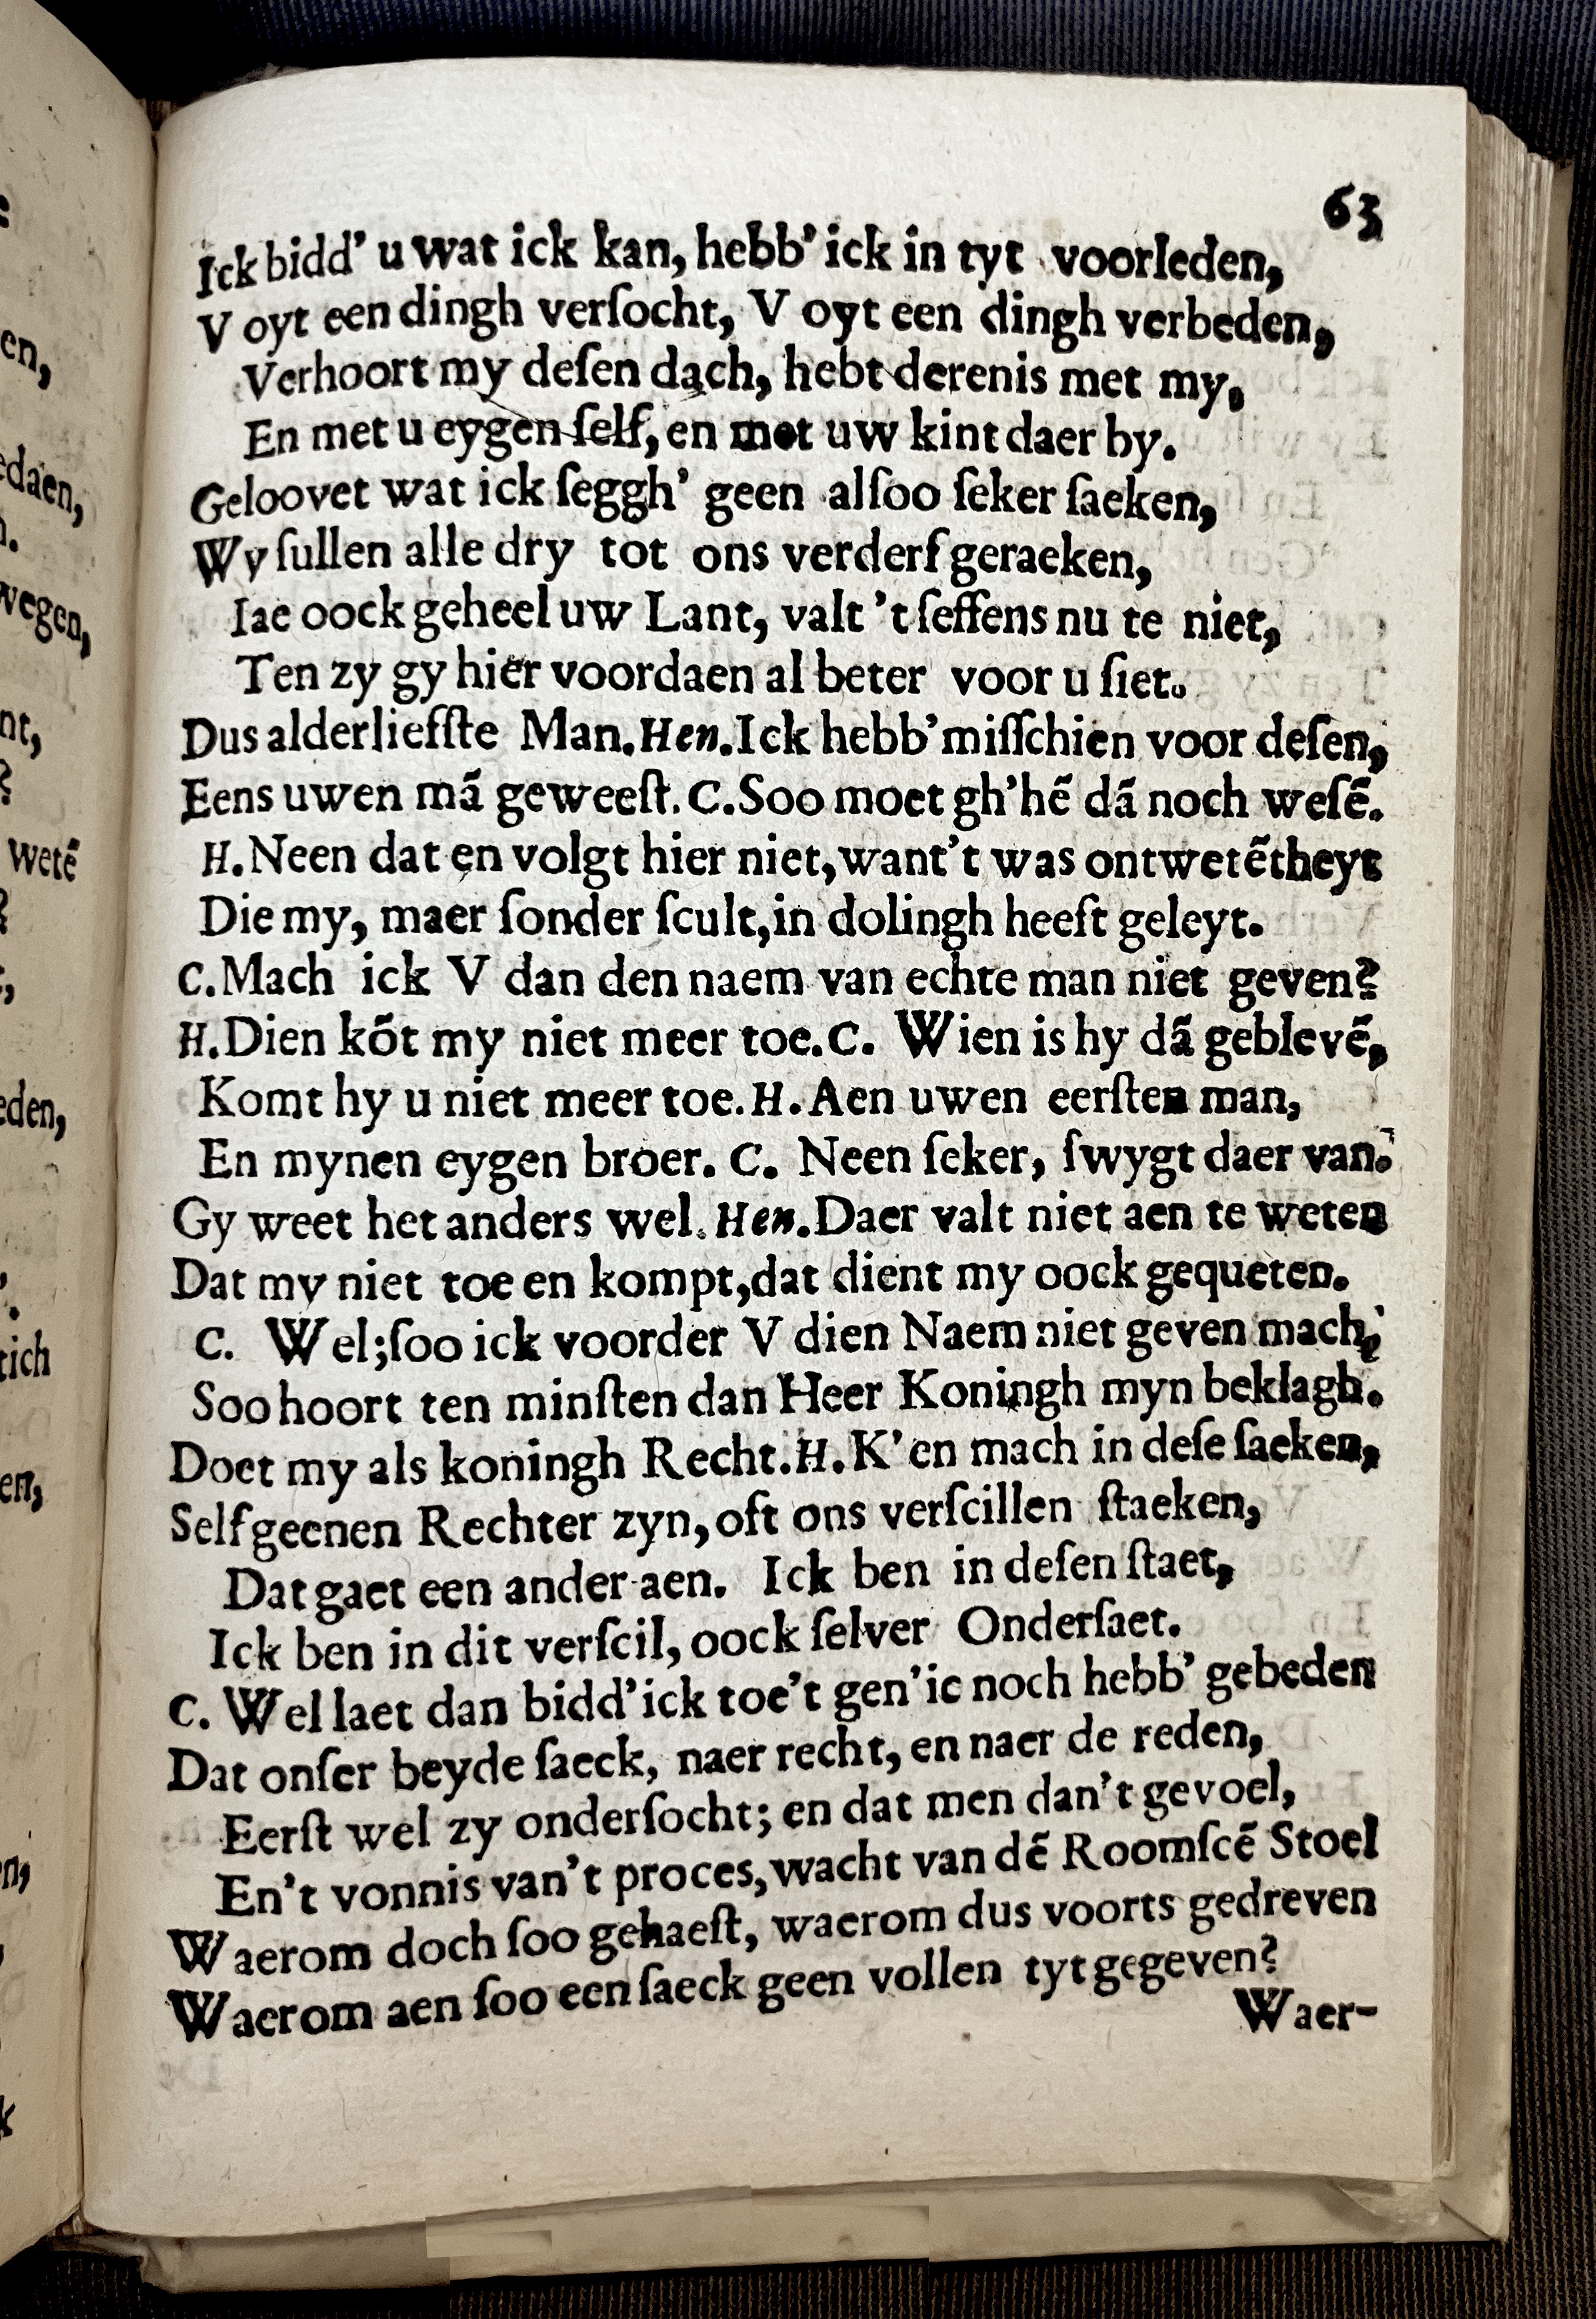 63
Ick bidd' u wat ick kan, hebb' ick in tyt voorleden,
V oyt een dingh verſocht, V oyt een dingh verbeden,
Verhoort my deſen dach, hebt derenis met my,
En met u eygen ſelf, en met uw kint daer by.
Geloovet wat ick ſeggh' geen alſoo ſeker ſaeken,
Wy ſullen alle dry tot ons verderf geraeken,
Iae oock geheel uw Lant, valt 't ſeffens nu te niet,
Ten zy gy hier voordaen al beter voor u ſiet.
Dus alderliefſte Man. Hen. Ick hebb' miſſchien voor deſen,
Eens uwen mã geweeſt. C. Soo moet gh'hẽ dã noch weſẽ.
H. Neen dat en volgt hier niet, want't was ontwetẽtheyt
Die my, maer ſonder ſcult, in dolingh heeft geleyt.
C. Mach ick V dan den naem van echte man niet geven?
H. Dien kõt my niet meer toe. C. Wien is hy dã geblevẽ,
Komt hy u niet meer toe. H. Aen uwen eerſten man,
En mynen eygen broer. C. Neen ſeker, ſwygt daer van.
Gy weet het anders wel. Hen. Daer valt niet aen te weten
Dat my niet toe en kompt, dat dient my oock gequeten.
C. Wel; ſoo ick voorder V dien Naem niet geven mach,
Soo hoort ten minſten dan Heer Koningh myn beklagh.
Doet my als koningh Recht. H. K'en mach in deſe ſaeken,
Self geenen Rechter zyn, oft ons verſcillen ſtaeken,
Dat gaet een ander aen. Ick ben in deſen ſtaet,
Ick ben in dit verſcil, oock ſelver Onderſaet.
C. Wel laet dan bidd' ick toe't gen' ic noch hebb' gebeden
Dat onſer beyde ſaeck, naer recht, en naer de reden,
Eerſt wel zy onderſocht; en dat men dan't gevoel,
En't vonnis van't proces, wacht van dẽ Roomſcẽ Stoel
Waerom doch ſoo gehaeſt, waerom dus voorts gedreven
Waerom aen ſoo een ſaeck geen vollen tyt gegeven?
Waer-
en,
edaen,
wegen,
nt,
wetẽ
eden,
tich
en,
n,